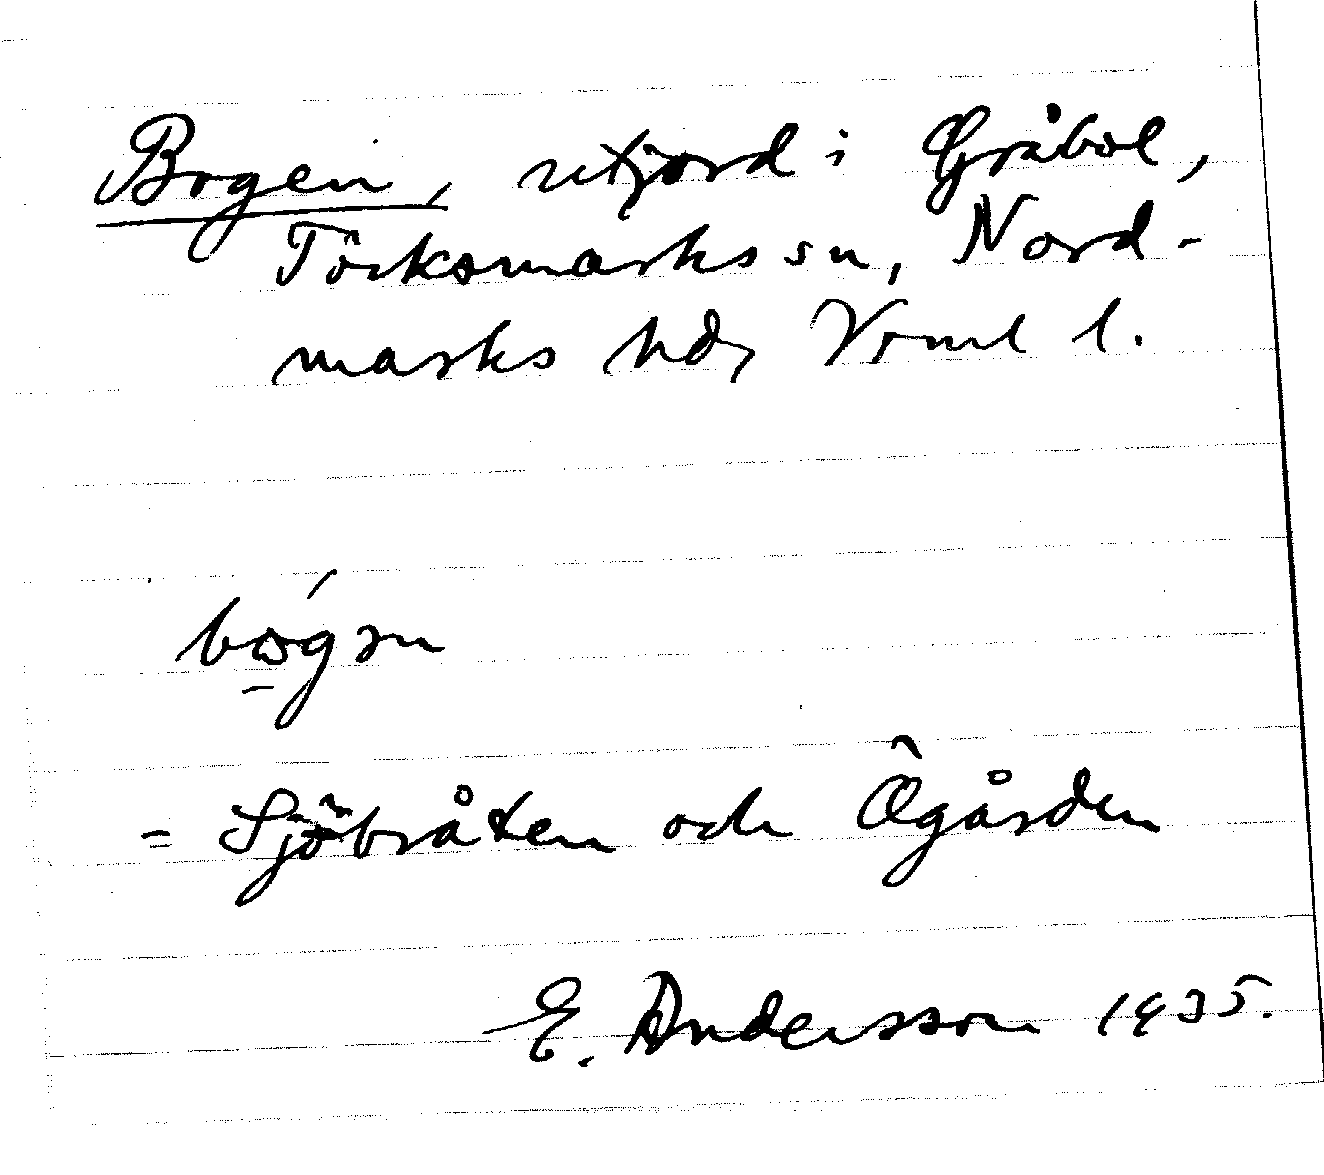 Bogen, utjord i Gråbol,
Töcksmarks sn, Nord-
marks hd, Vrml l.
bógən
= Sjöbråten och Ögården
E. Andersson 1935.